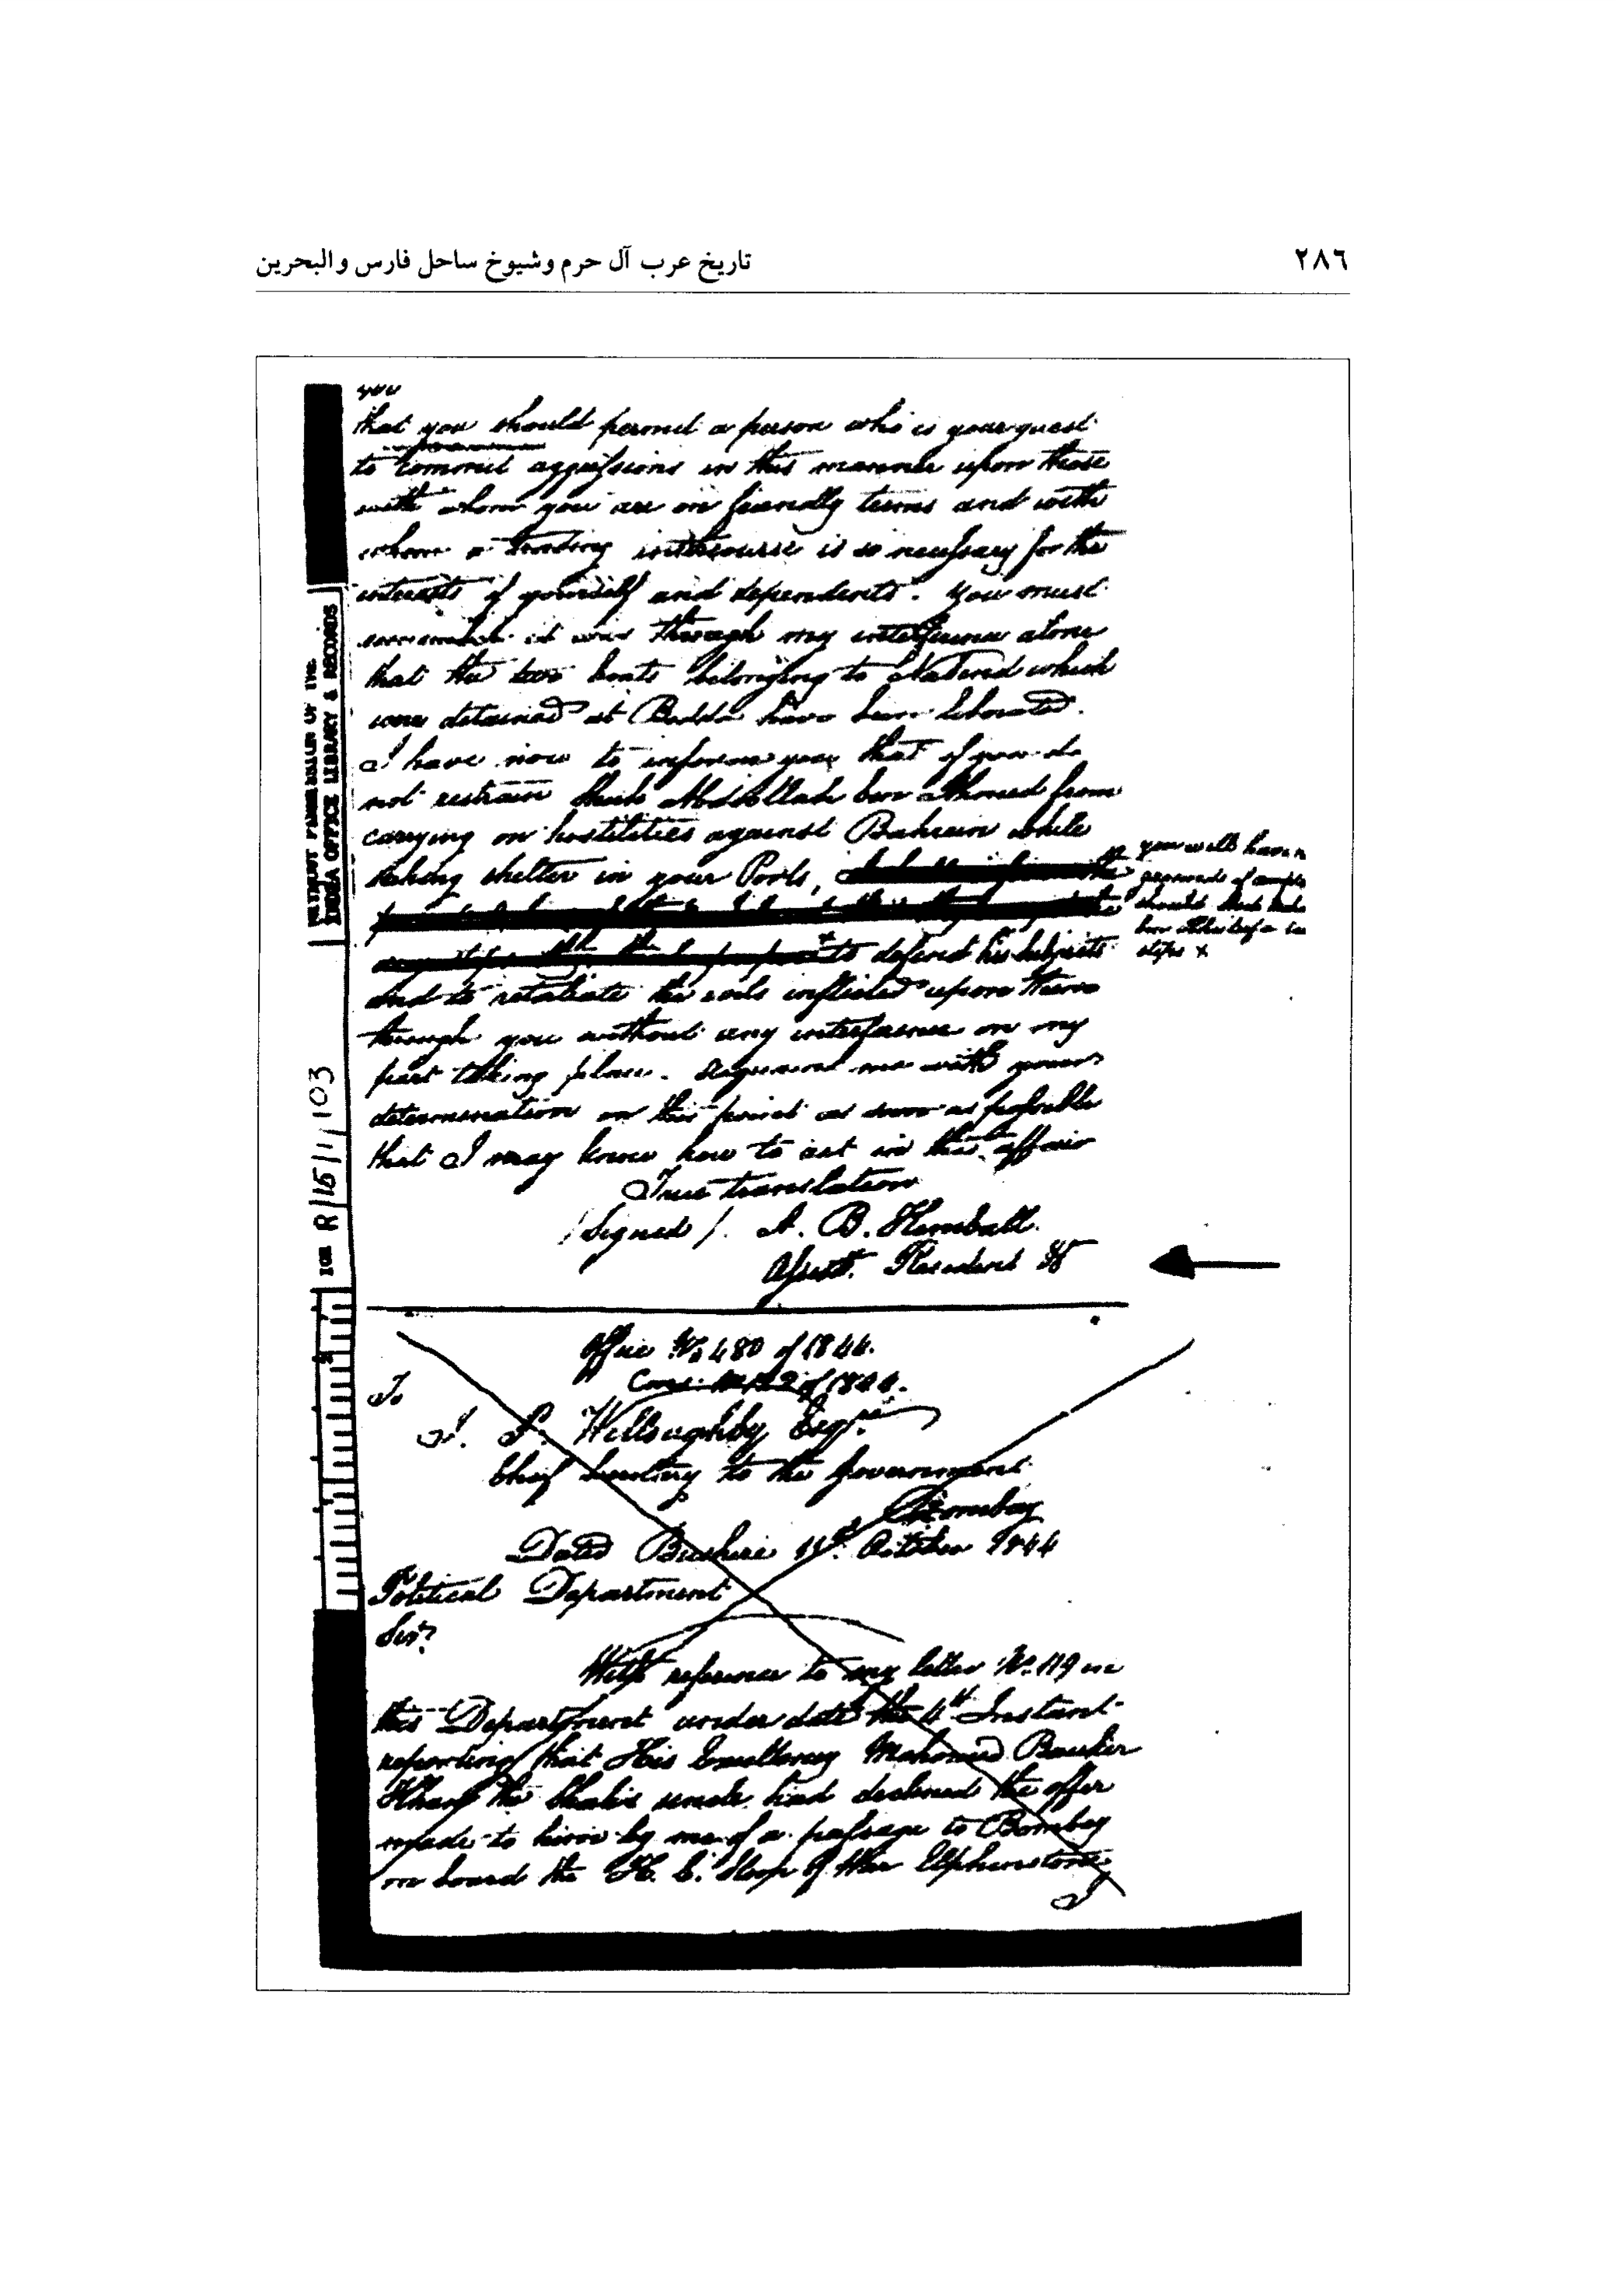 تاريخ عرب آل حرم وشيوخ ساحل فارس والبحرين
٢٨٦
you
that you should permit a person who is your guest
to commit aggressions in this manner upon those
with whom you are on friendly terms and with
whom a trading intercourse is so necessary for the
interests of yourself and dependents. You must
remember it was through my interference alone
that the two boats belonging to which
were detained at have been liberated.
I have now to inform you that if you do
not restrain Sheik Abdoollah bin Ahmed from
carrying on hostilities against Bahrein while
taking shelter in your Ports,
you will have no
grounds of
should
steps x
to defend his subjects
and to retaliate the evils inflicted upon them
through you without any interference on my
part taking place. Acquaint me with your
determination on this point as soon as possible
that I may know how to act in this affair
True translation
/Signed/. A. B. Kemball
Assist. Resident
Office No 480 of 1844.
of 1844.
To
J. P. Willoughby Esqre
Chief Secretary to the Government
Bombay
Dated Bushire October 1844
Political Department
Sir,
With reference to my letter No. 119 in
this Department under date the Instant
reporting that His Excellency Mahomed Bauker
Khan the Shah's uncle had declined the offer
made to him by me of a passage to Bombay
on board the H. C. Sloop of War Elphinstone
I
INDIA OFFICE LIBRARY & RECORDS
IOR R/15/1/103